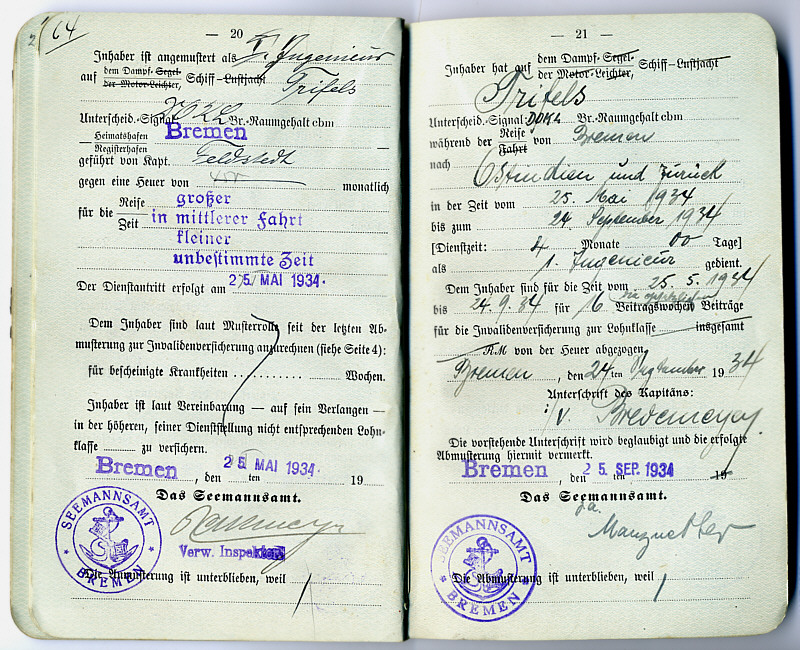 64
— 20 —
Inhaber ist angemustert als I. Ingenieur
auf dem Dampf-Segel- Schiff-Luftjacht Trifels
der Motor-Leichter,
Unterscheid.-Signal Br.-Raumgehalt cbm
Heimatshafen Bremen
Registerhafen
geführt von Kapt. Feldstedt
gegen eine Heuer von monatlich
großer
für die Reise in mittlerer Fahrt
Zeit
kleiner
unbestimmte Zeit
Der Dienstantritt erfolgt am 25 MAI 1934
Dem Inhaber sind laut Musterrolle seit der letzten Ab-
musterung zur Invalidenversicherung anzurechnen (siehe Seite 4):
für bescheinigte Krankheiten ........... Wochen.
Inhaber ist laut Vereinbarung — auf sein Verlangen —
in der höheren, seiner Dienststellung nicht entsprechenden Lohn-
klasse ......... zu versichern.
Bremen, den 25 MAI 1934. ten 19
Das Seemannsamt.
SEEMANNSAMT BREMEN
Verw. Inspektor
Die Abmusterung ist unterblieben, weil
— 21 —
Inhaber hat auf dem Dampf-Segel- Schiff-Luftjacht
der Motor-Leichter,
Trifels
Unterscheid.-Signal DOKA Br.-Raumgehalt cbm
während der Reise von Bremen
Fahrt
nach Ostindien und zurück
in der Zeit vom 25. Mai 1934
bis zum 24. September 1934
[Dienstzeit: 4 Monate 00 Tage]
als 1. Ingenieur gedient.
Dem Inhaber sind für die Zeit vom 25.5.1934
bis 24.9.34 für 16 Beitragswochen Beiträge
für die Invalidenversicherung zur Lohnklasse insgesamt
RM von der Heuer abgezogen.
Bremen, den 24ten September 1934
Unterschrift des Kapitäns:
v. Bredemeyer
Die vorstehende Unterschrift wird beglaubigt und die erfolgte
Abmusterung hiermit vermerkt.
Bremen, den 25. SEP. 1934 19
Das Seemannsamt.
SEEMANNSAMT BREMEN
Die Abmusterung ist unterblieben, weil